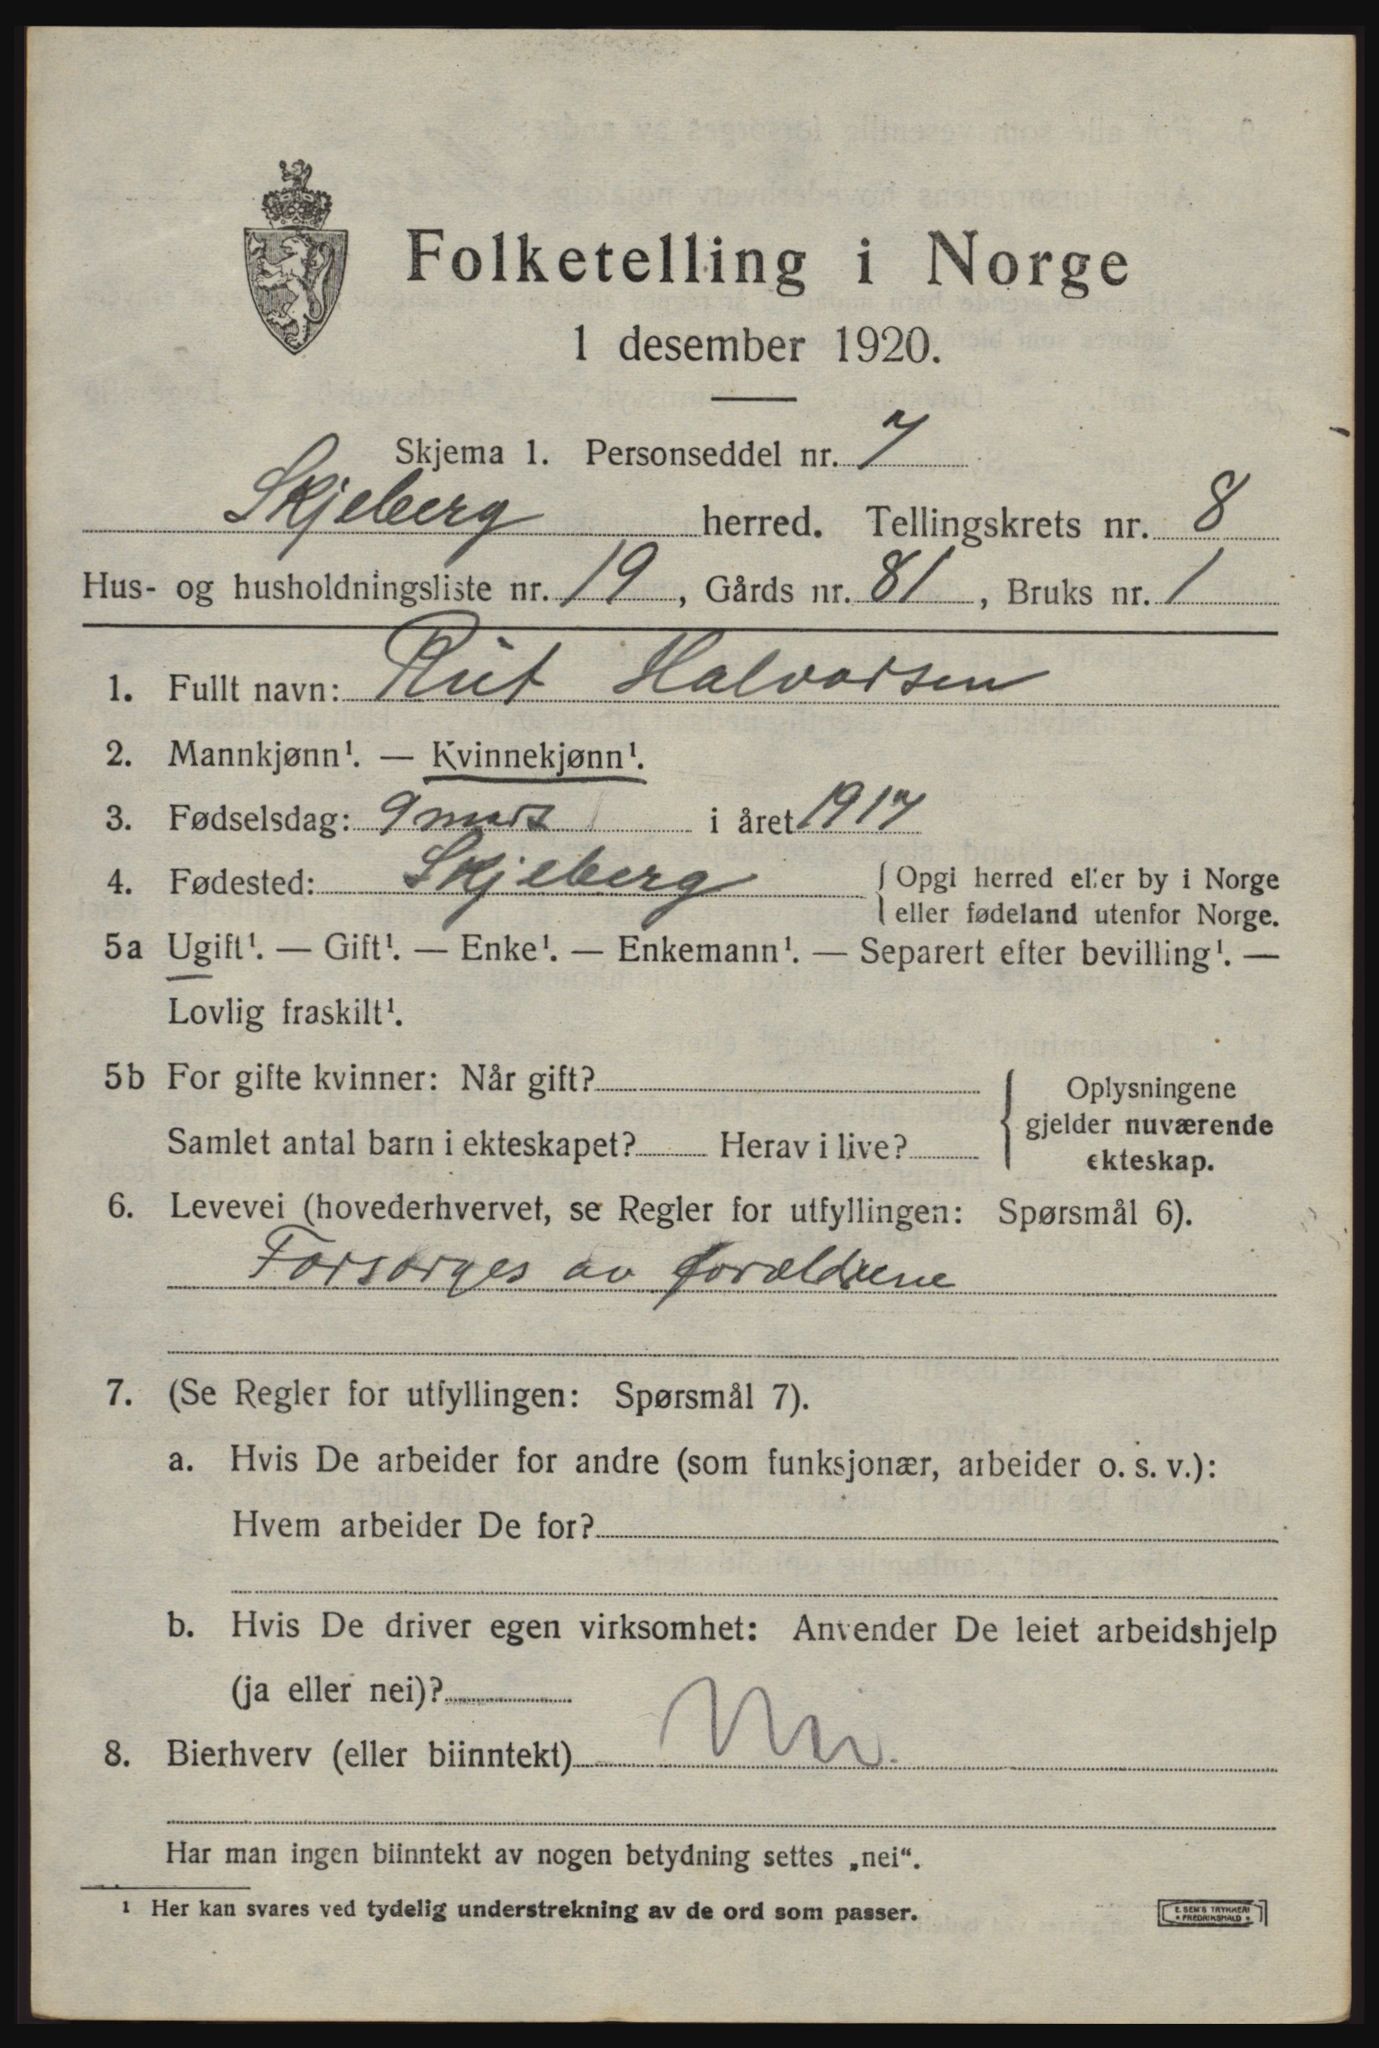 Folketelling i Norge
1 desember 1920.
Skjema 1. Personseddel nr. 7
Skjeberg herred. Tellingskrets nr. 8
Hus- og husholdningsliste nr. 19, Gårds nr. 81, Bruks nr. 1
1. Fullt navn: Rut Halvorsen
2. Mannkjønn¹. — Kvinnekjønn¹.
3. Fødselsdag: 9 mars i året 1917
4. Fødested: Skjeberg { Opgi herred eller by i Norge
eller fødeland utenfor Norge.
5a Ugift¹. — Gift¹. — Enke¹. — Enkemann¹. — Separert efter bevilling¹. —
Lovlig fraskilt¹.
5b For gifte kvinner: Når gift? { Oplysningene
gjelder nuværende
Samlet antal barn i ekteskapet? Herav i live? ekteskap.
6. Levevei (hovederhvervet, se Regler for utfyllingen: Spørsmål 6).
Forsørges av forældrene
7. (Se Regler for utfyllingen: Spørsmål 7).
a. Hvis De arbeider for andre (som funksjonær, arbeider o. s. v.):
Hvem arbeider De for?
b. Hvis De driver egen virksomhet: Anvender De leiet arbeidshjelp
(ja eller nei)?
8. Bierhverv (eller biinntekt) Nei.
Har man ingen biinntekt av nogen betydning settes „nei“.
¹ Her kan svares ved tydelig understrekning av de ord som passer.
E. SEM'S TRYKKERI
• FREDRIKSHALD •